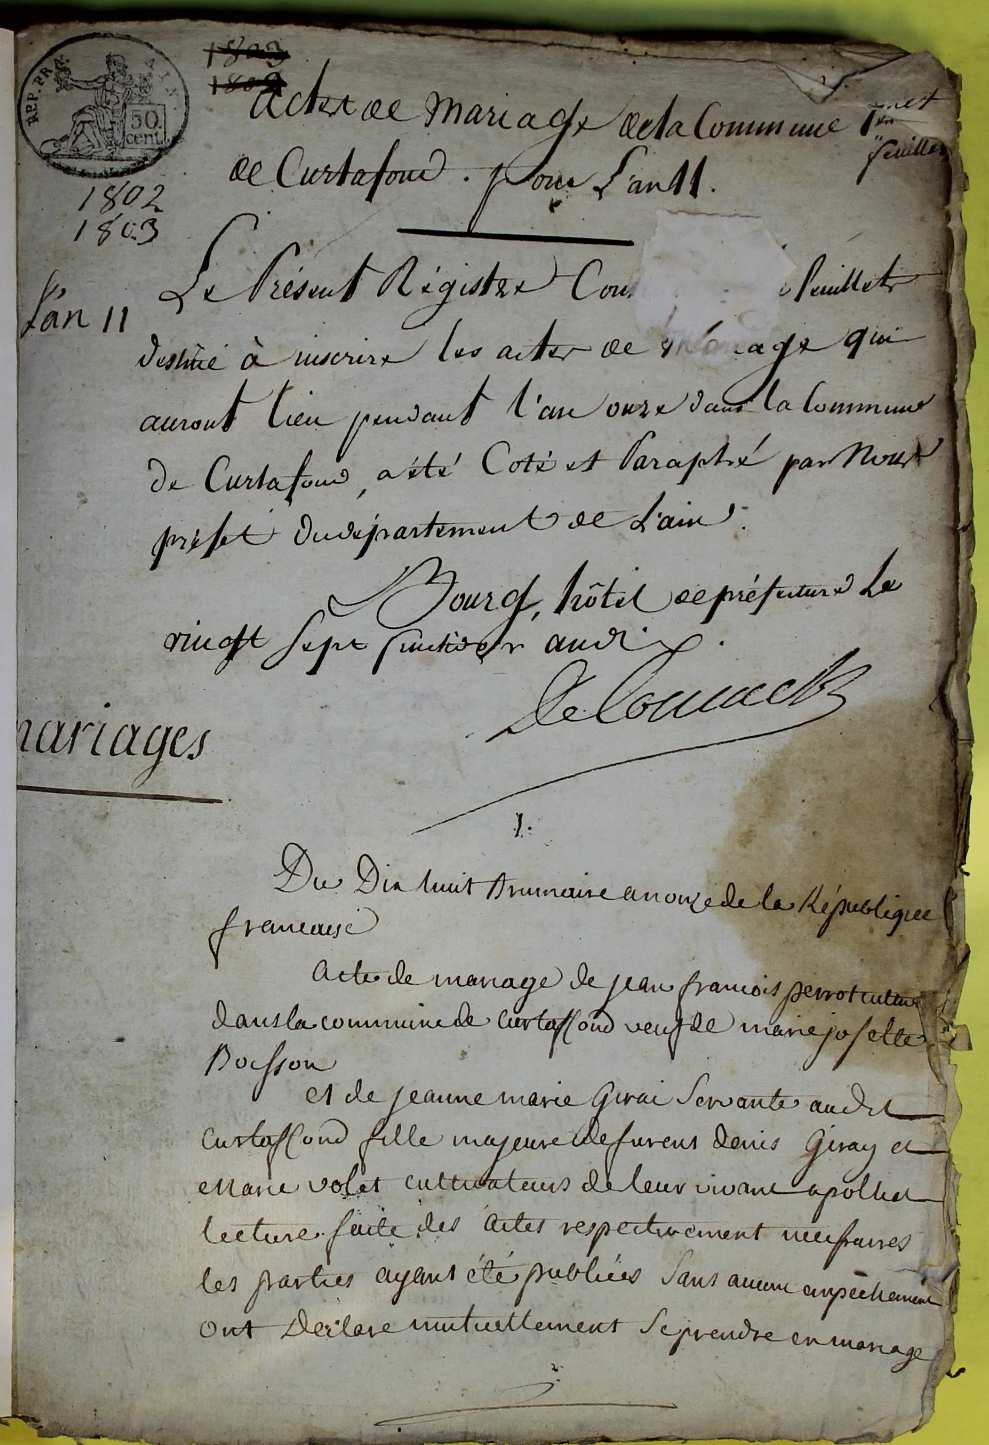 1803
1802
REP. FRA. AIN.
50 cent.
1802
1803
Actes de Mariage de la Commune
de Curtafond. pour L'an 11.
feuillet
L'an 11
Le Présent Régistre feuillets
destiné à inscrire les actes de mariage qui
auront lieu pendant l'an onze dans la Commune
de Curtafond, a été Coté et Paraphé par Nous
préfet du département de L'ain.
Bourg, hôtel de préfecture Le
vingt sept fructidor an dix.
mariages
1.
Du Dix huit Brumaire an onze de la République
francaise
Acte de mariage de jean francois perrot cultiv
dans la commune de Curtaffond veuf de marie josette
Boisson
et de jeanne marie Girai Servante audit
Curtaffond fille majeure defureur denis Giray et
Marie volet cultivateurs de leur vivant a polliat
lecture faite des Actes respectivement necessaires
les parties ayant été publiées Sans aucun empêchement
ont Déclaré mutuellement Se prendre en mariage